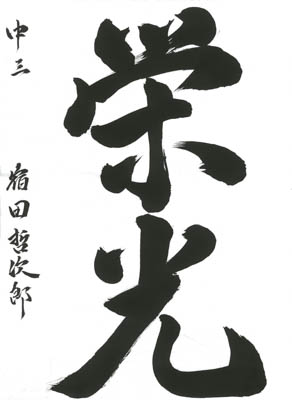 栄光
中三 宿田哲次郎